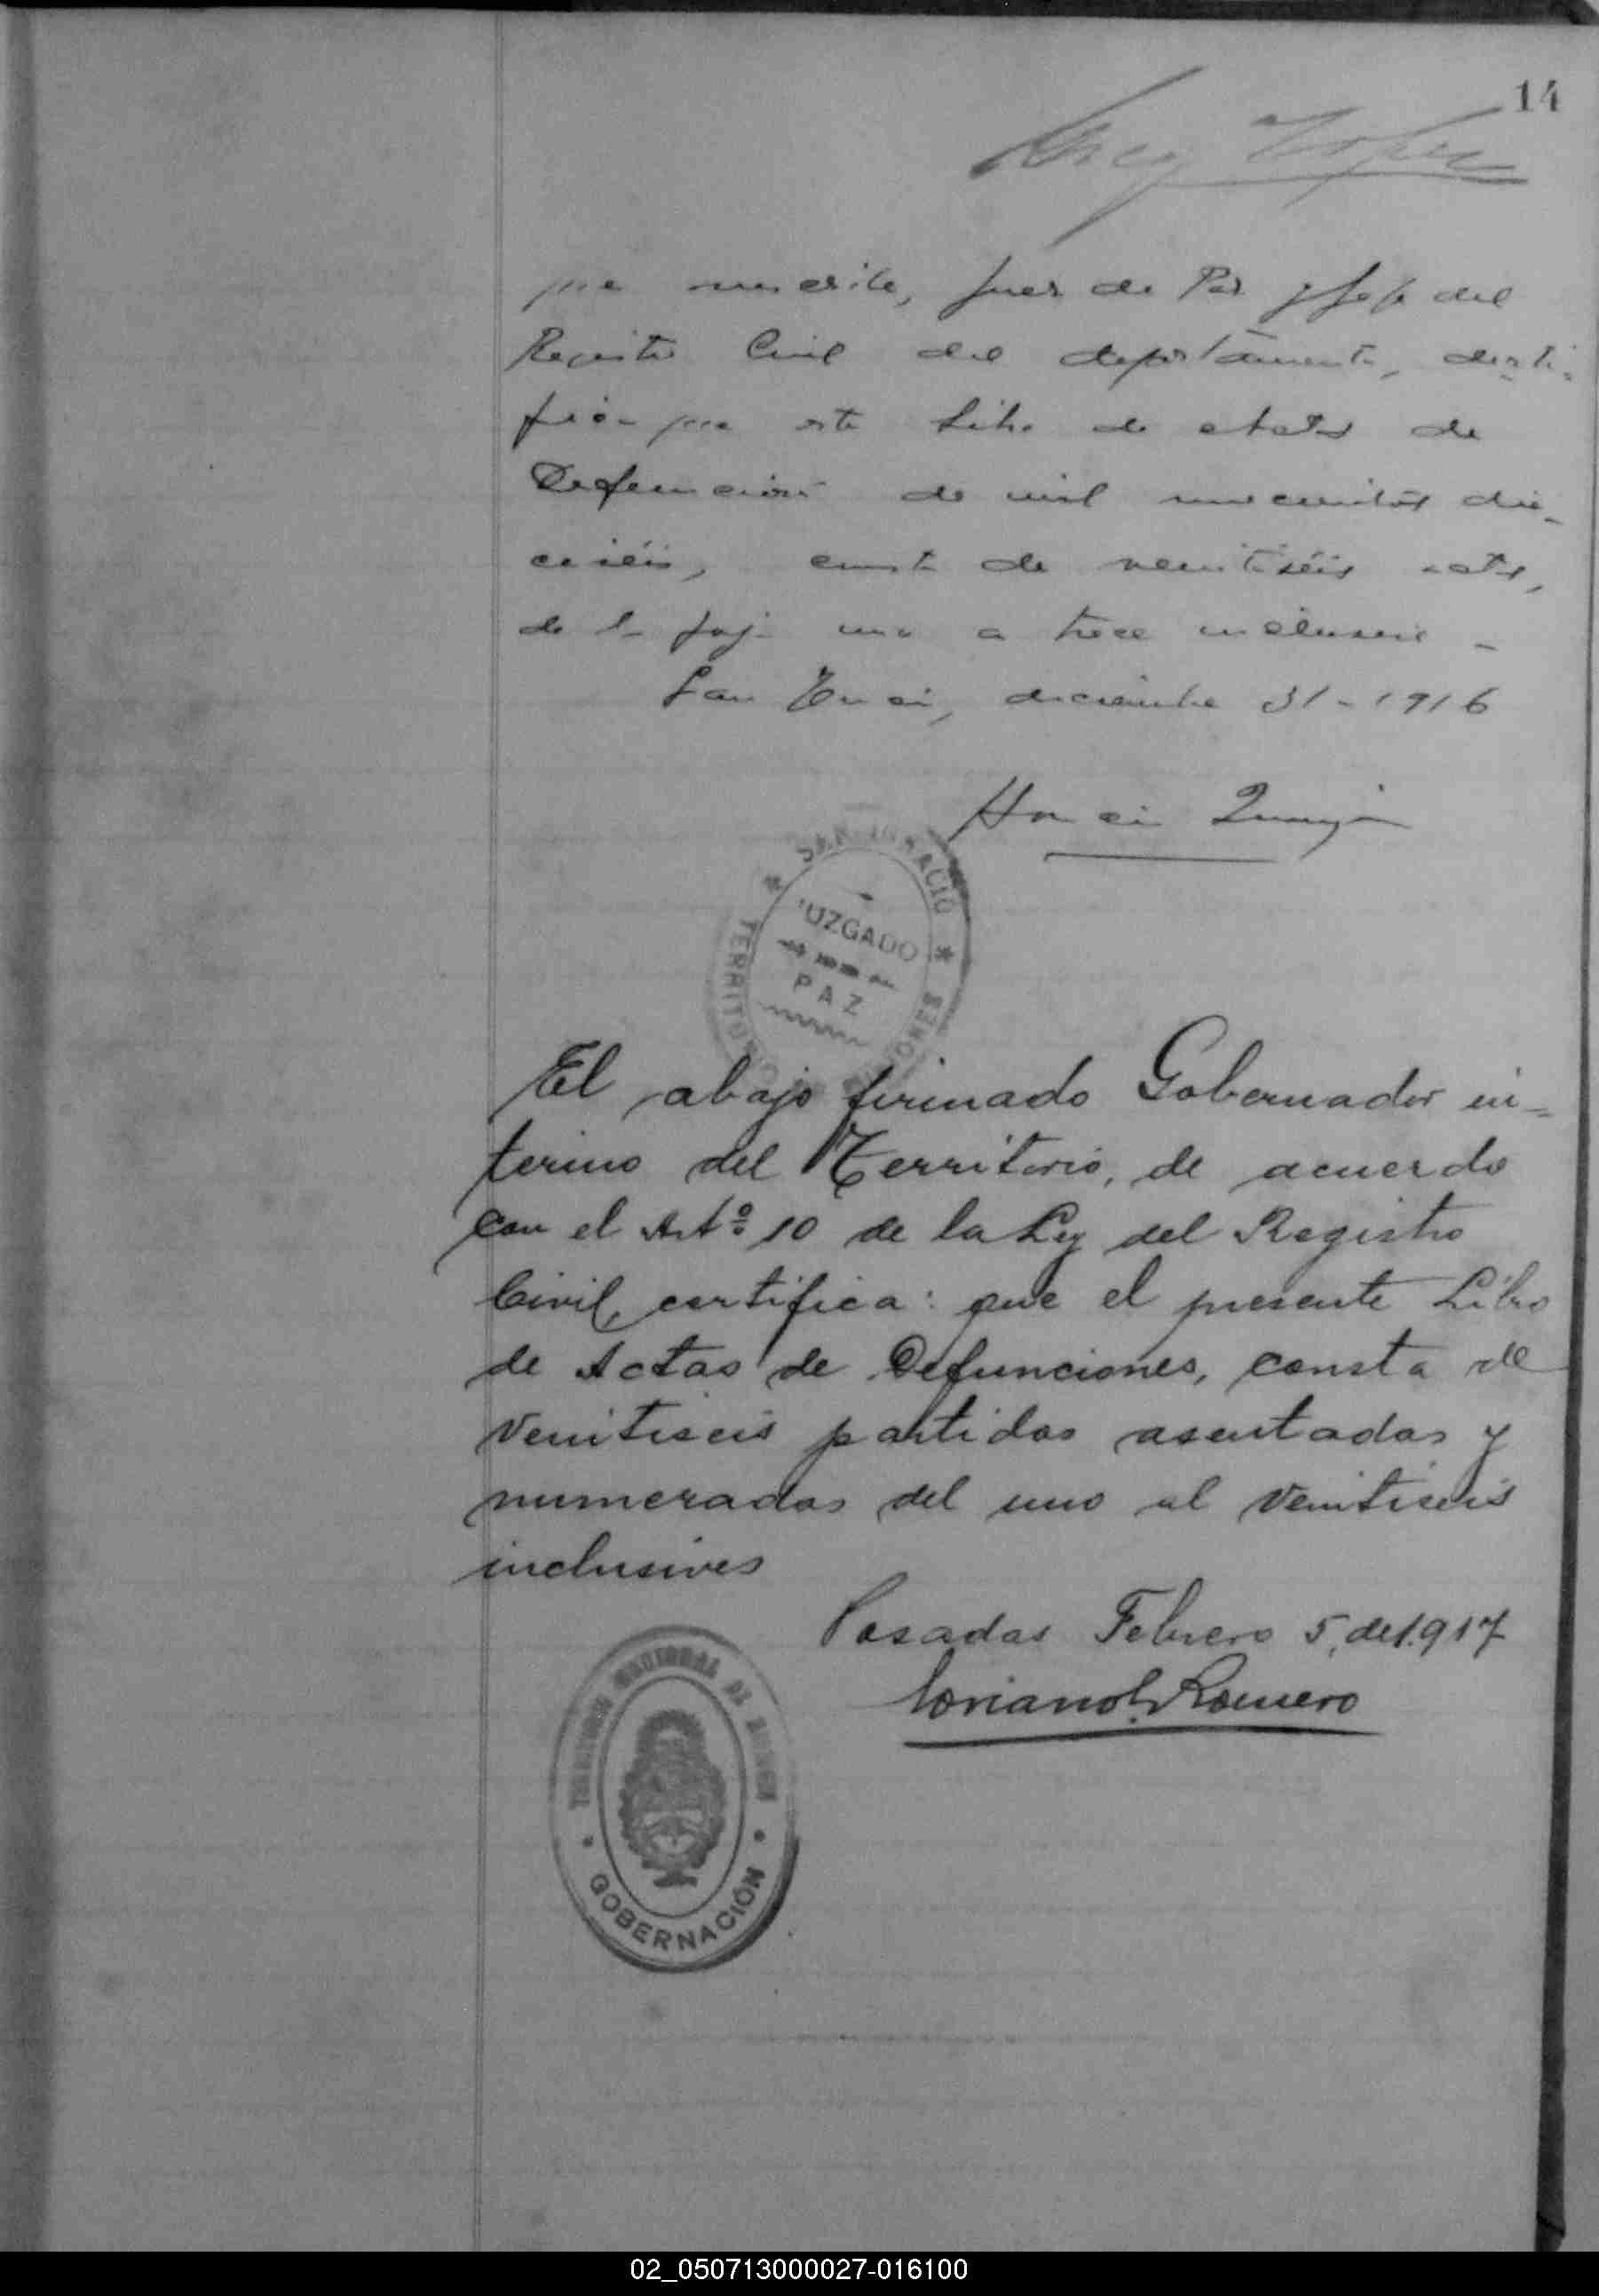 14
que suscribe, Juez de Paz y Jefe del
Registro Civil del departamento, certi-
fico que este Libro de actas de
Defunciones de mil novecientos die-
ciseis, consta de veintiseis actas,
de la foja una a trece inclusive -
San Ignacio, diciembre 31 - 1916
SAN IGNACIO
JUZGADO
PAZ
TERRITORIO MISIONES
El abajo firmado Gobernador in=
terino del Territorio, de acuerdo
con el Artº 10 de la Ley del Registro
Civil, certifica: que el presente Libro
de Actas de Defunciones, consta de
veintiseis partidas asentadas y
numeradas del uno al veintiseis
inclusives
Posadas Febrero 5, de 1917
Romero
TERRITORIO NACIONAL DE MISIONES
GOBERNACIÓN
02_050713000027-016100